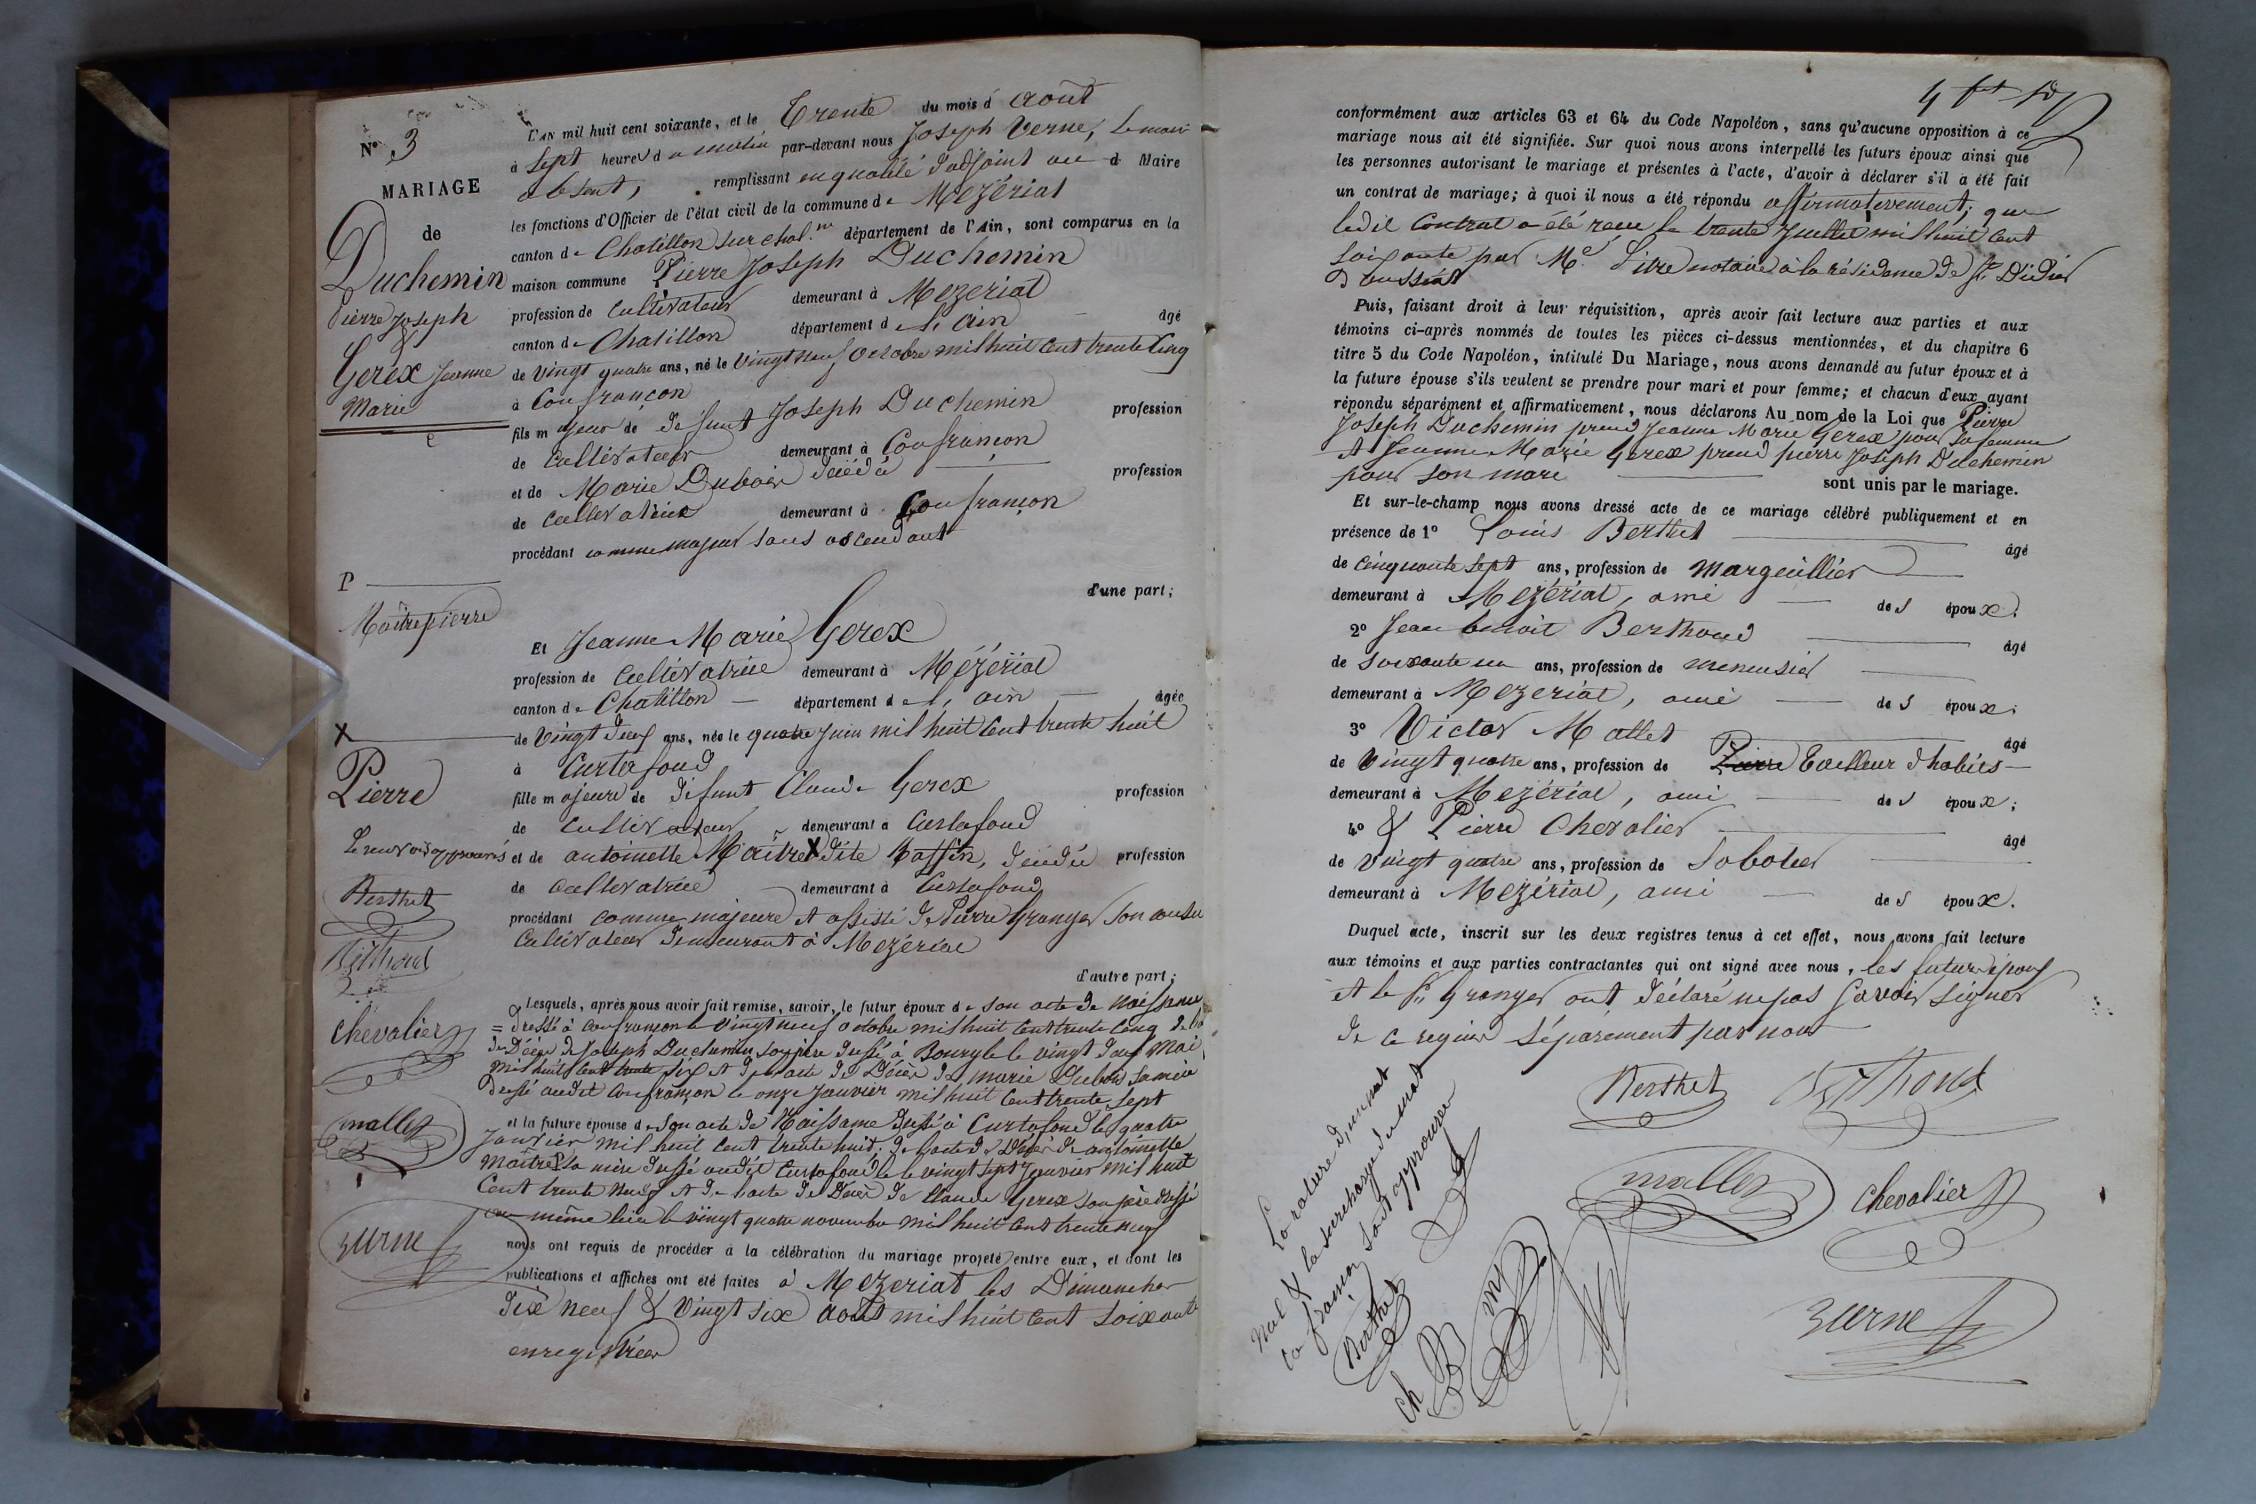 N° 3
MARIAGE
de
Duchemin
Pierre Joseph
&
Gerex Jeanne
Marie
L'AN mil huit cent soixante, et le Trente du mois d'août
à sept heures du matin par-devant nous Joseph Verne, le maire
absent, remplissant en qualité d'adjoint au d Maire
les fonctions d'Officier de l'état civil de la commune de Mezériat
canton de Chatillon sur chal.ne département de l'Ain, sont comparus en la
maison commune Pierre Joseph Duchemin
profession de cultivateur demeurant à Mezeriat
canton de Chatillon département de l'ain âgé
de vingt quatre ans, né le vingt neuf octobre mil huit cent trente cinq
à Confrançon
fils majeur de défunt Joseph Duchemin profession
de cultivateur demeurant à Confrançon
et de Marie Dubois décédée profession
de cultivatrice demeurant à Confrançon
procédant comme majeur sans ascendant
d'une part;
P
Maitrepierre
Et Jeanne Marie Gerex
profession de cultivatrice demeurant à Mézériat
canton de Chatillon département de l'ain âgée
X
de vingt deux ans, née le quatre juin mil huit cent trente huit
à Curtafond
Pierre
fille majeure de défunt Claude Gerex profession
de cultivateur demeurant à Curtafond
Le renvoi approuvés
et de antoinette Maitre X dite Baffin, décédée profession
de cultivatrice demeurant à Curtafond
Berthet
procédant comme majeure et assisté de Pierre Granger son cousin
cultivateur demeurant à Mezériat
Berthoud
d'autre part;
Lesquels, après nous avoir fait remise, savoir, le futur époux de son acte de naissance
chevalier
dressé à confrançon le vingt neuf octobre mil huit cent trente cinq de la
de Décès de Joseph Duchemin son père dressé à Bourg le le vingt deux Mai
mil huit cent trente six et de l'acte de Décès de marie Dubois sa mère
dressé audit confrançon le onze janvier mil huit cent trente sept
mallet
et la future épouse de son acte de Naissance dressé à Curtafond le quatre
janvier mil huit cent trente huit; de l'acte de Décès de antoinette
Maitre X sa mère dressé audit Curtafond le le vingt sept janvier mil huit
cent trente neuf et de l'acte de Décès de Claude Gerex son père dressé
au même lieu le vingt quatre novembre mil huit cent trente neuf
verne
nous ont requis de procéder à la célébration du mariage projeté entre eux, et dont les
publications et affiches ont été faites à Mezeriat les Dimanches
dix neuf & vingt six août mil huit cent soixante
enregistrées
conformément aux articles 63 et 64 du Code Napoléon, sans qu'aucune opposition à ce
mariage nous ait été signifiée. Sur quoi nous avons interpellé les futurs époux ainsi que
les personnes autorisant le mariage et présentes à l'acte, d'avoir à déclarer s'il a été fait
un contrat de mariage; à quoi il nous a été répondu affirmativement; que
ledit contrat a été reçu le trente juillet mil huit cent
soixante par Me notaire à la résidence de St Didier
d'aussiat
Puis, faisant droit à leur réquisition, après avoir fait lecture aux parties et aux
témoins ci-après nommés de toutes les pièces ci-dessus mentionnées, et du chapitre 6
titre 5 du Code Napoléon, intitulé Du Mariage, nous avons demandé au futur époux et à
la future épouse s'ils veulent se prendre pour mari et pour femme; et chacun d'eux ayant
répondu séparément et affirmativement, nous déclarons Au nom de la Loi que Pierre
Joseph Duchemin prend Jeanne Marie Gerex pour sa femme
et Jeanne Marie Gerex prend pierre Joseph Duchemin
pour son mari sont unis par le mariage.
Et sur-le-champ nous avons dressé acte de ce mariage célébré publiquement et en
présence de 1° Louis Berthet âgé
de cinquante sept ans, profession de margeuillier
demeurant à Mezériat, ami des époux.
2° Jean benoit Berthoud âgé
de soixante un ans, profession de menuisier
demeurant à Mezeriat, ami des époux;
3° Victor Mallet âgé
de vingt quatre ans, profession de Pierre Tailleur d'habits
demeurant à Mezériat, ami des époux;
4° & Pierre Chevalier âgé
de vingt quatre ans, profession de Sabotier
demeurant à Mezériat, ami des époux.
Duquel acte, inscrit sur les deux registres tenus à cet effet, nous avons fait lecture
aux témoins et aux parties contractantes qui ont signé avec nous, les futurs époux
et le Sr Granger ont déclaré ne pas savoir signer
de ce requis séparément par nous
Berthet
Berthoud
mallet
chevalier
verne
La rature d'un mot
nul & la surcharge du mot
sont approuvés
Berthet
ch B m